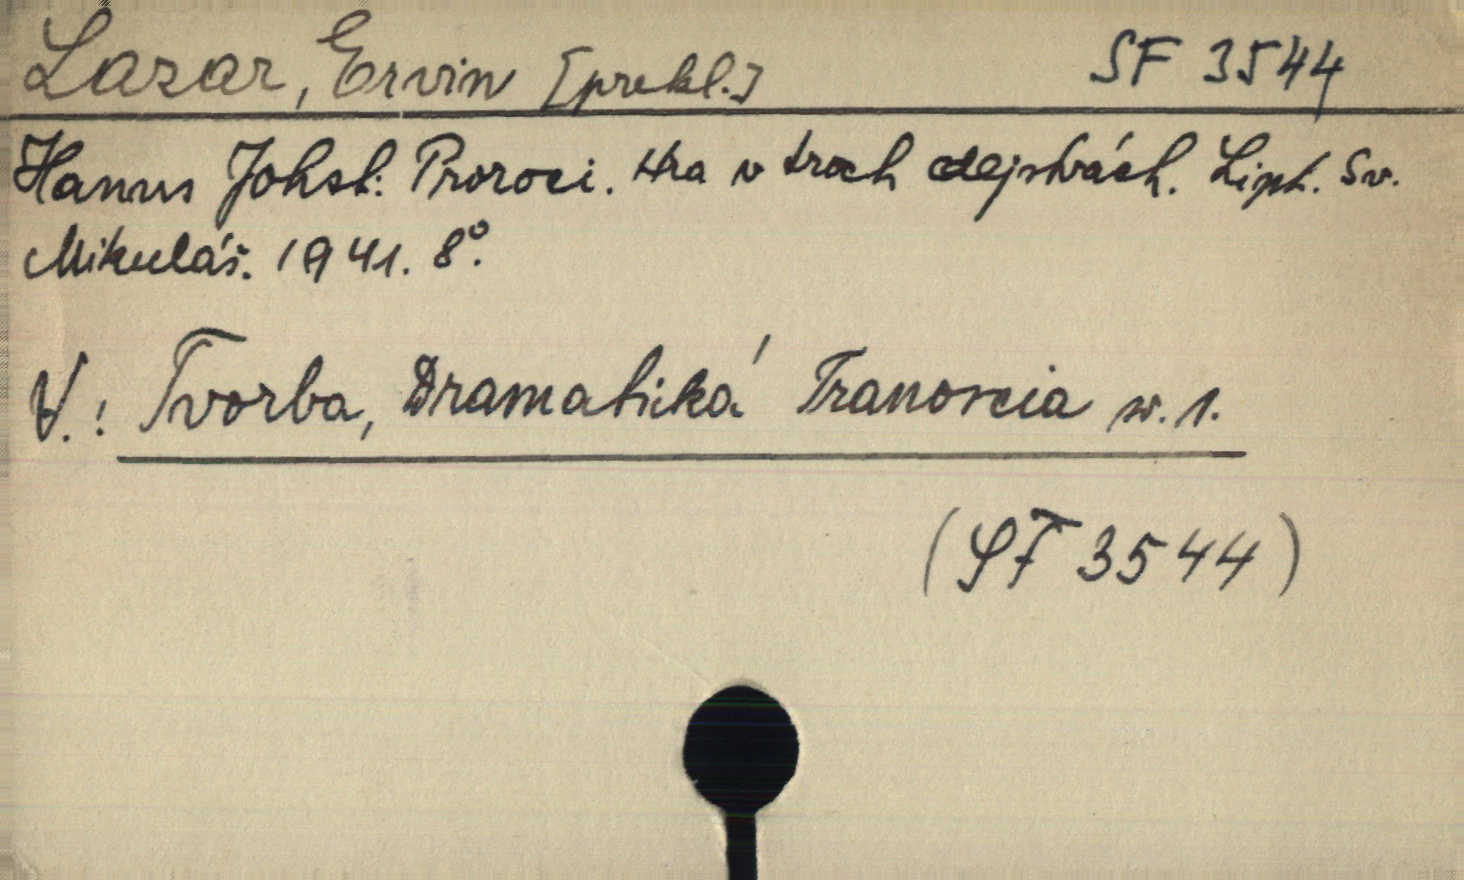 Lazar, Ervin [prekl.] SF 3544
Hanns Johst: Proroci. Hra v troch dejstvách. Lipt. Sv.
Mikuláš. 1941. 8°.
V.: Tvorba, Dramatická Tranoscia sv. 1.
(SF 3544)